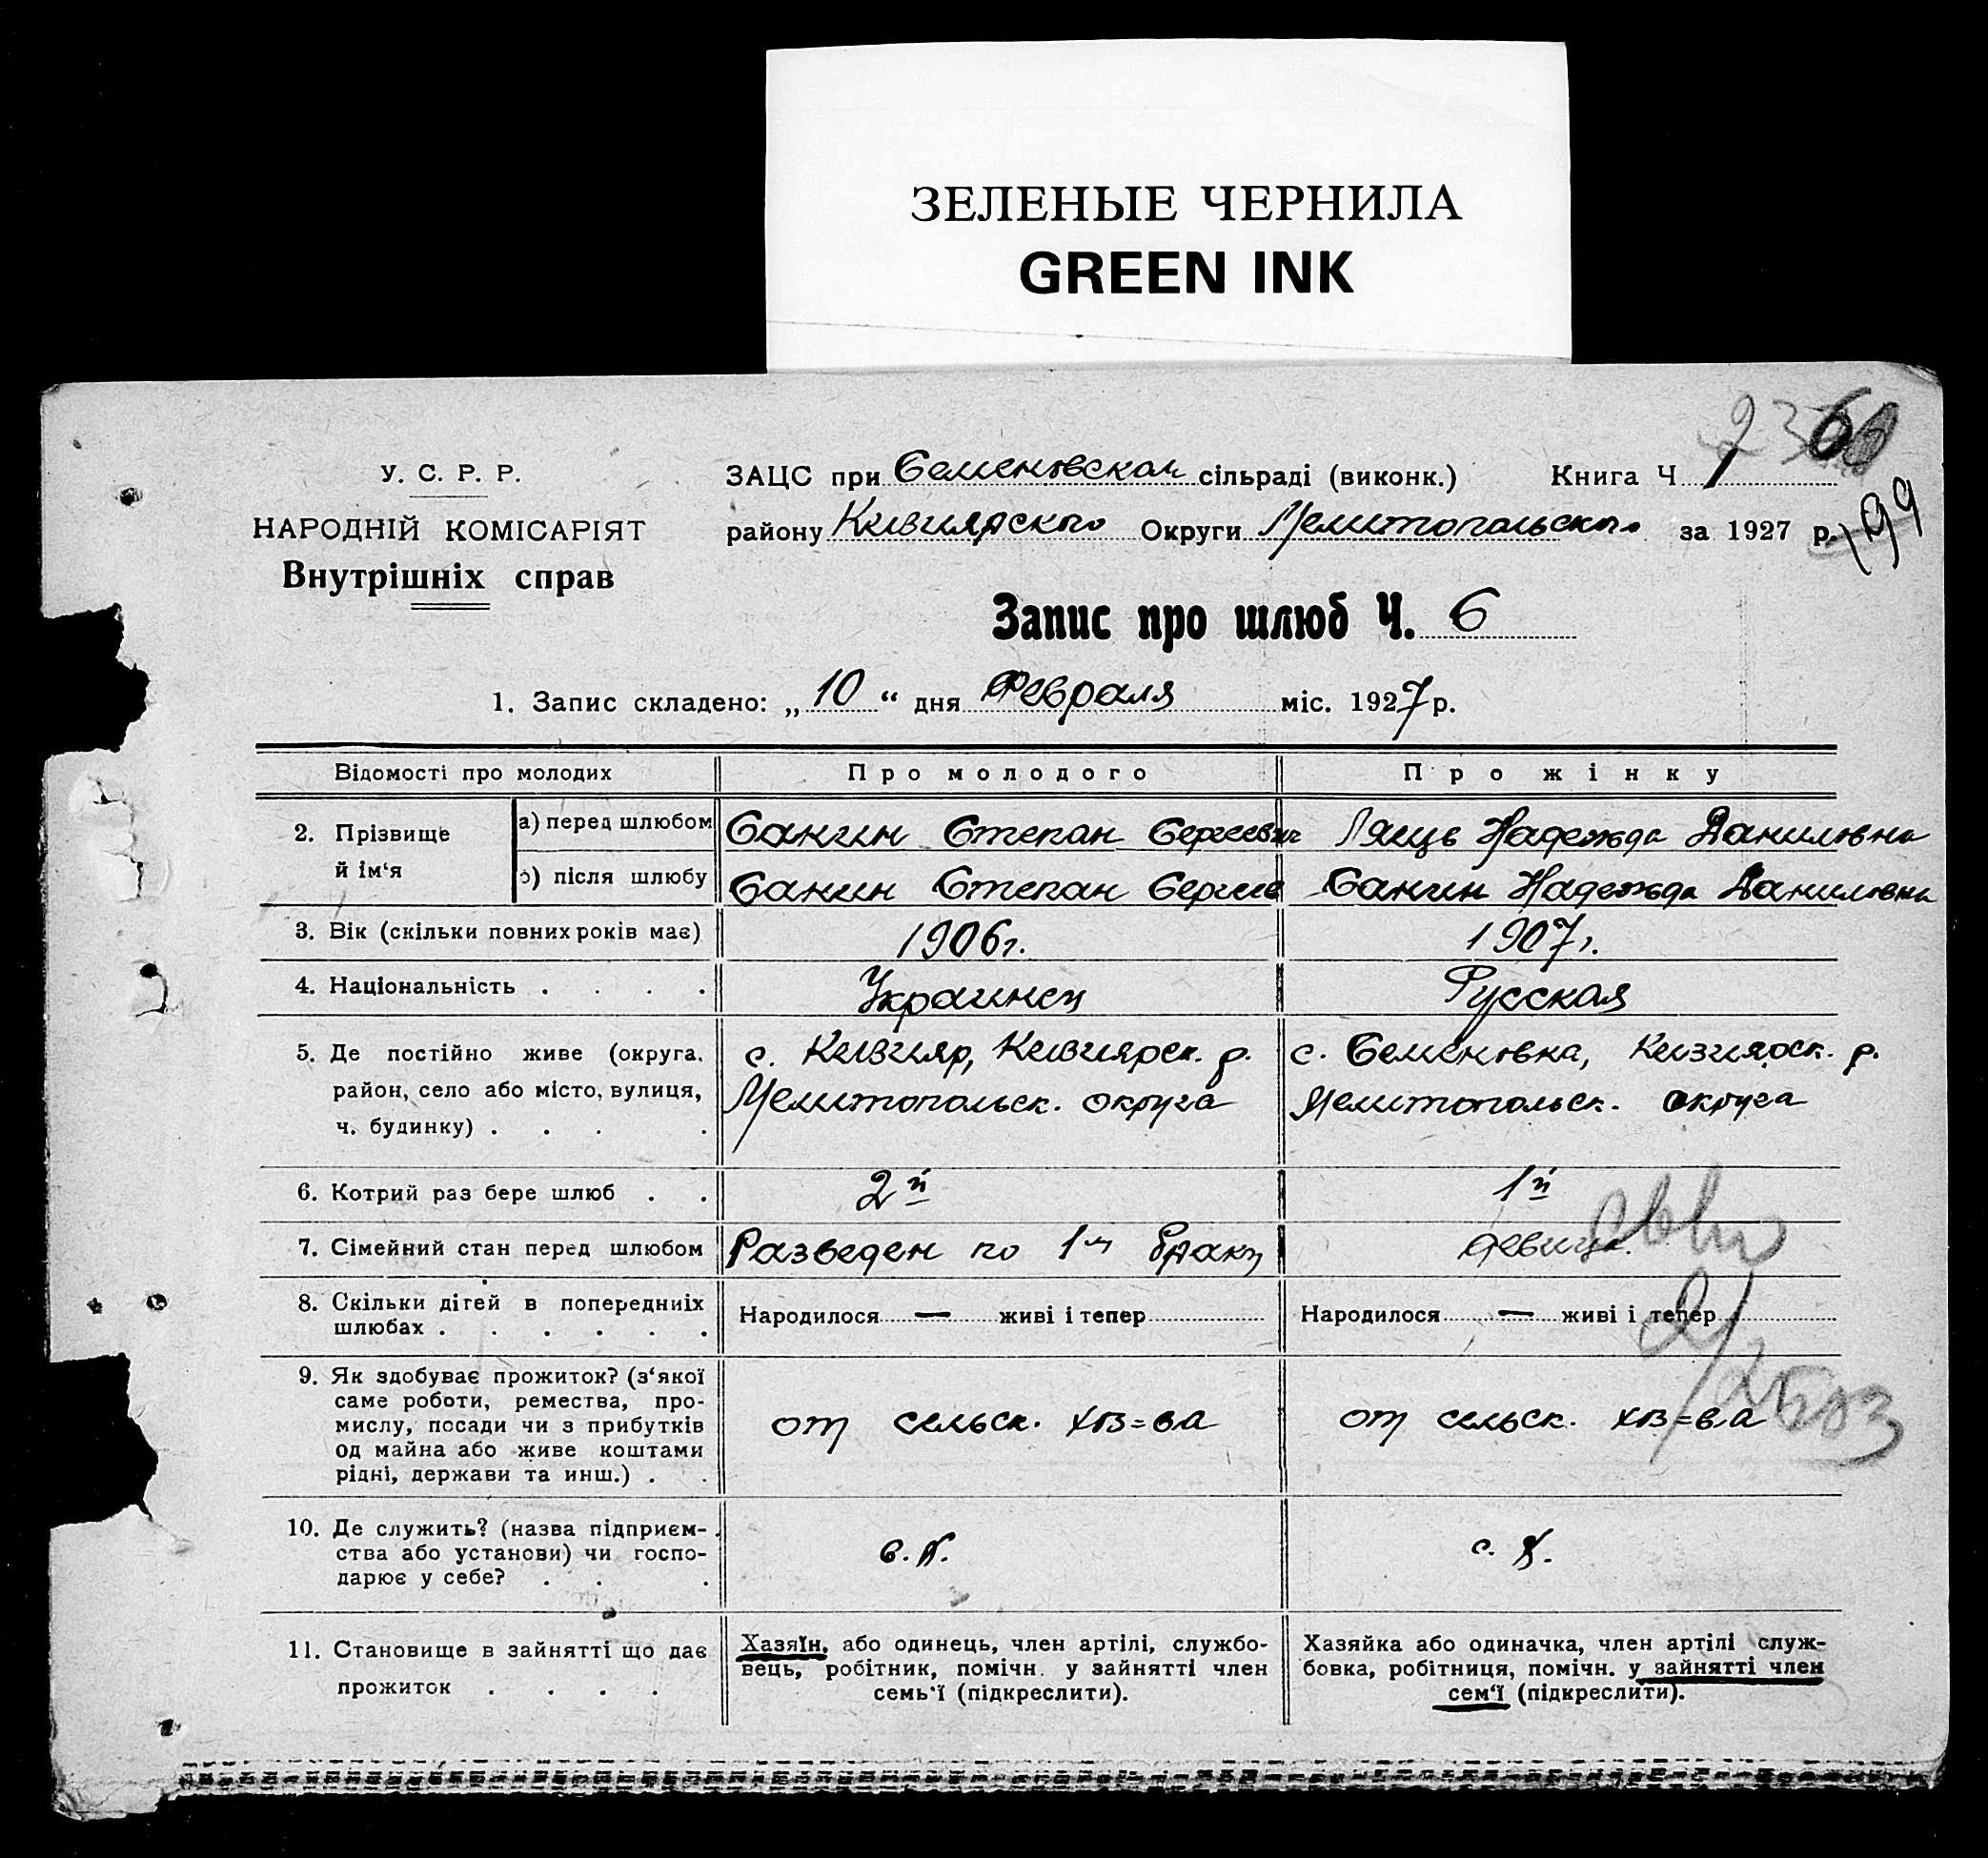 ЗЕЛЕНЫЕ ЧЕРНИЛА
GREEN INK
У. С. Р. Р.
НАРОДНІЙ КОМІСАРІЯТ
Внутрішніх справ
ЗАЦС при Семеновском сільраді (виконк.) Книга Ч 1
району Кизиярского Округи Мелитопольского за 1927 р.
199
Запис про шлюб Ч. 6
1. Запис складено: „ 10 “ дня Февраля міс. 1927 р.
Відомості про молодих Про молодого Про жінку
2. Прізвище й ім‘я
а) перед шлюбом Санин Степан Сергеевич Лящь Надежда Даниловна
б) після шлюбу Санин Степан Сергеев Санин Надежда Даниловна
3. Вік (скільки повних років має) 1906г. 1907г.
4. Національність . . . . Украинец Русская
5. Де постійно живе (округа, район, село або місто, вулиця, ч. будинку) . . . .
с. Кизияр, Кизиярск. р.
Мелитопольск. округа
с. Семеновка, Кизиярск. р.
Мелитопольск. округа
6. Котрий раз бере шлюб . . 2й 1й
7. Сімейний стан перед шлюбом Разведен по 1му браку девица.
8. Скільки дітей в попередниіх шлюбах . . . . . .
Народилося — живі і тепер
Народилося — живі і тепер
9. Як здобуває прожиток? (з‘якої
саме роботи, ремества, про-
мислу, посади чи з прибутків
од майна або живе коштами
рідні, держави та инш.) . .
от сельск. хоз=ва
от сельск. хоз=ва
10. Де служить? (назва підприєм-
ства або установи) чи госпо-
дарює у себе? . . .
11. Становище в зайнятті що дає
прожиток . . . .
Хазяїн, або одинець, член артілі, службо-
вець, робітник, помічн. у зайнятті член
семь‘ї (підкреслити).
Хазяйка або одиначка, член артілі служ-
бовка, робітниця, помічн. у зайнятті член
сем‘ї (підкреслити).